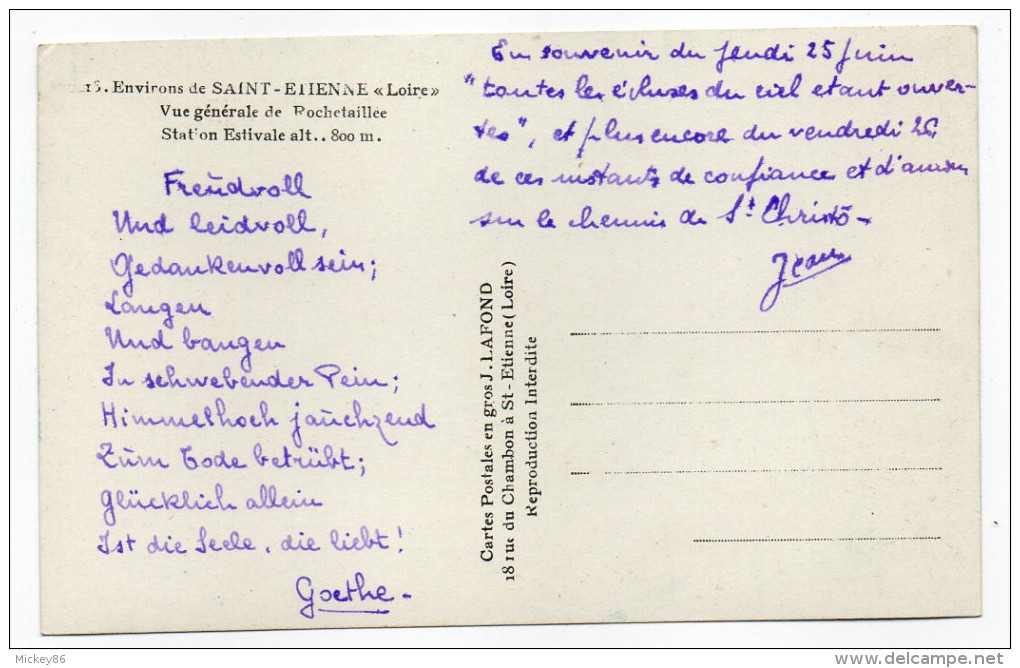 15. Environs de SAINT-ETIENNE «Loire»
Vue générale de Rochetaillée
Station Estivale alt.. 800 m.
Freudvoll
Und leidvoll,
Gedankenvoll sein;
Langen
Und bangen
In schwebender Pein;
Himmelhoch jaŭchzend
Zŭm Tode betrübt;
Glücklich allein
Ist die Seele, die liebt!
Goethe -
En souvenir du Jeudi 25 Juin
"toutes les écluses du ciel etant ouver-
tes", et plus encore du vendredi 26,
de ces instants de confiance et d'amour
sur le chemin de St Christo -
Jean
Cartes Postales en gros J. LAFOND
18 rue du Chambon à St-Etienne (Loire)
Reproduction Interdite
Mickey86
delcampe.net